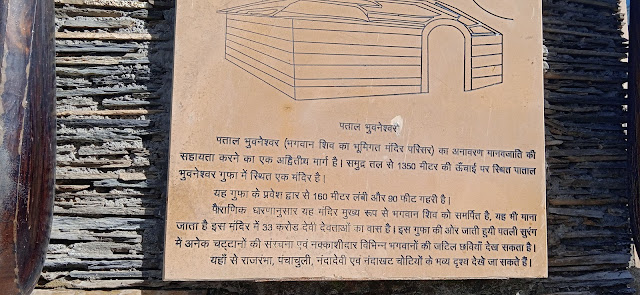 पताल भुवनेश्वर
पताल भुवनेश्वर (भगवान शिव का भूमिगत मंदिर परिसर) का अनावरण मानवजाति की
सहायता करने का एक अद्वितीय मार्ग है। समुद्र तल से 1350 मीटर की ऊँचाई पर स्थित पाताल
भुवनेश्वर गुफा में स्थित एक मंदिर है।
यह गुफा के प्रवेश द्वार से 160 मीटर लंबी और 90 फीट गहरी है।
पौराणिक धारणानुसार यह मंदिर मुख्य रूप से भगवान शिव को समर्पित है, यह भी माना
जाता है इस मंदिर में 33 करोड देवी देवताओं का वास है। इस गुफा की ओर जाती हुयी पतली सुरंग
में अनेक चट्टानों की संरचना एवं नक्काशीदार विभिन्न भगवानों की जटिल छवियाँ देख सकता है।
यहाँ से राजरंभा, पंचाचुली, नंदादेवी एवं नंदाखट चोटियों के भव्य दृश्य देखें जा सकते हैं।